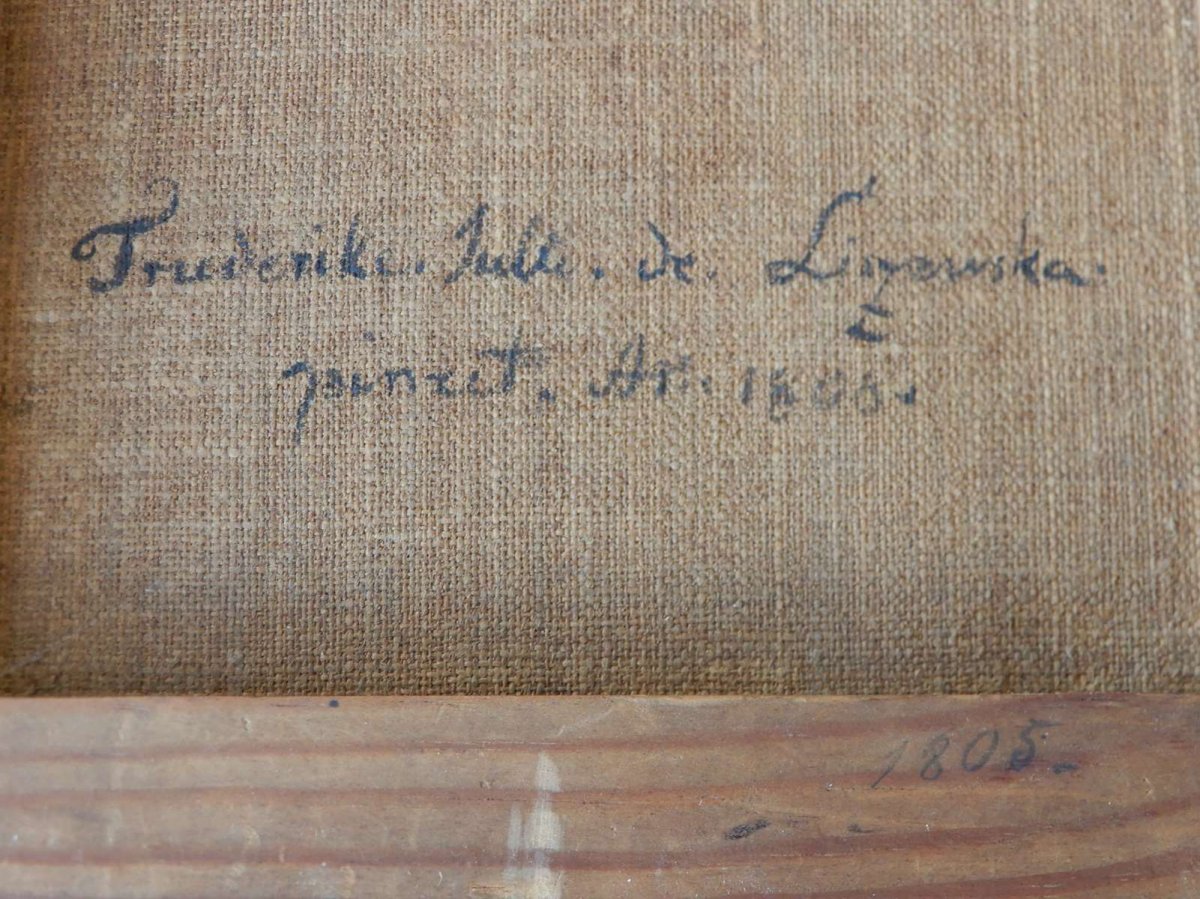 Friederike. Julie. de. Lizewska.
pinxit. An. 1805.
1805.